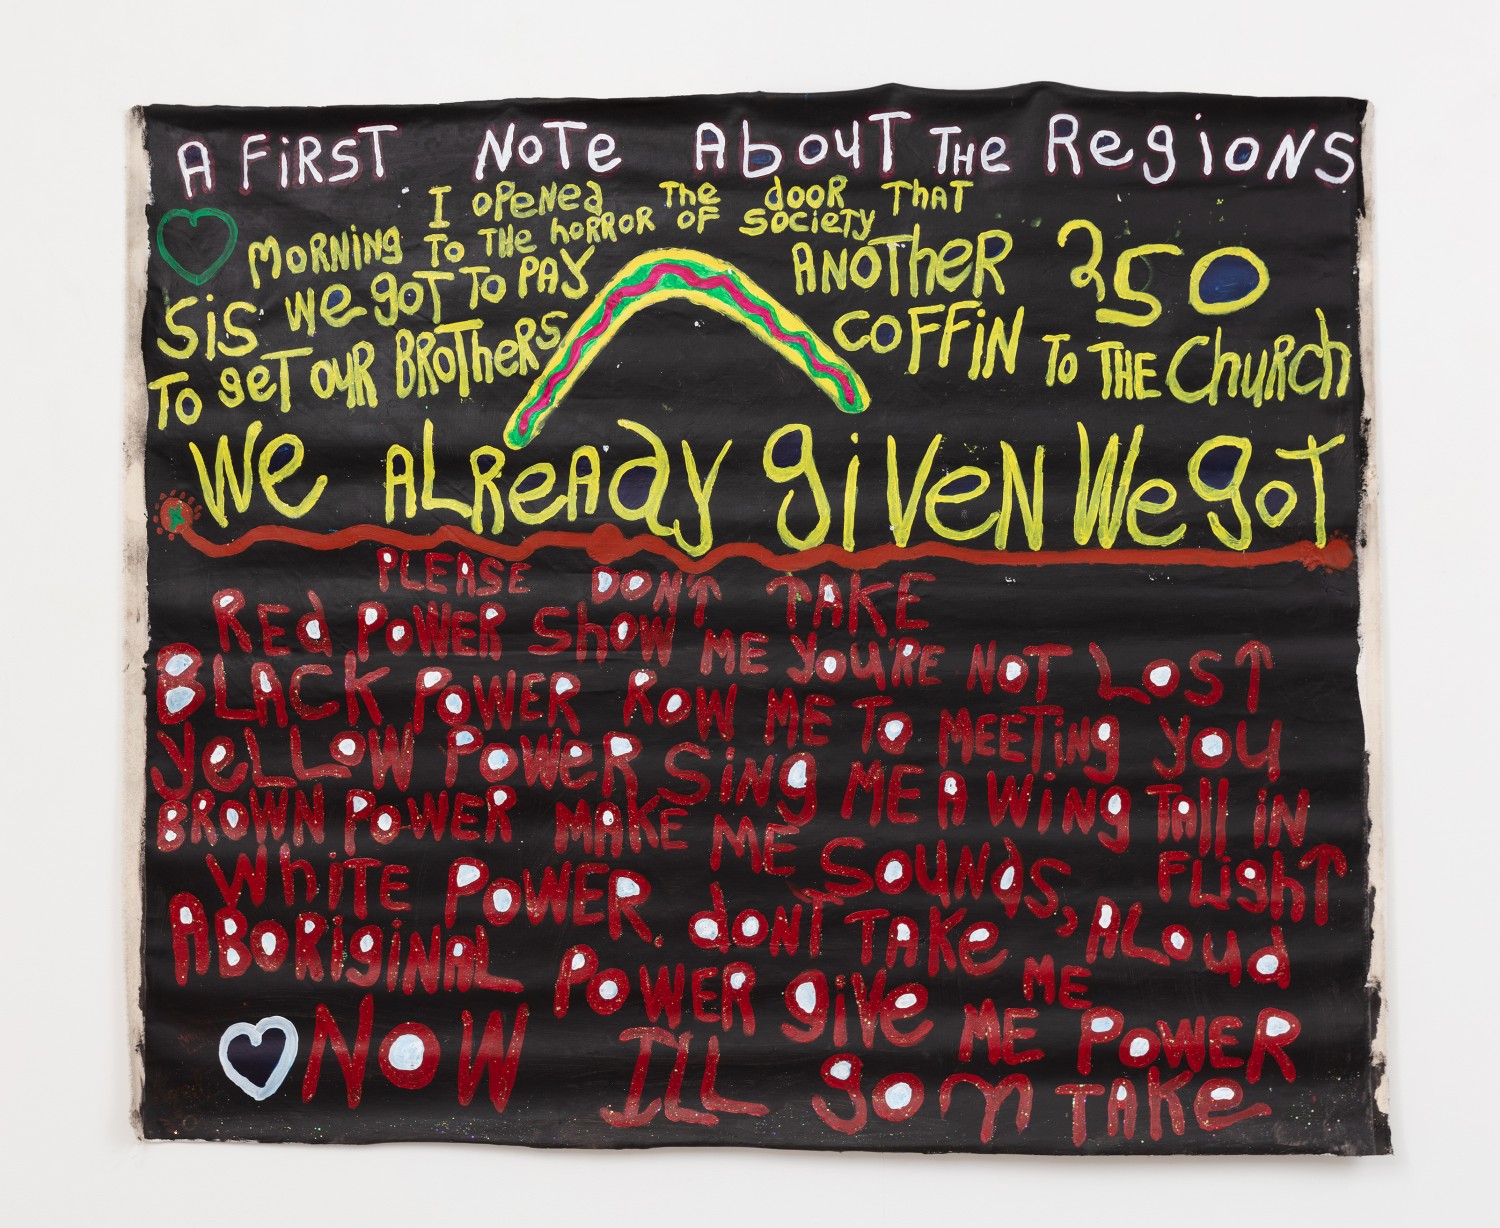 A FiRST NoTe AbouT THe RegioNS
I opeNed The dooR THaT
MoRNiNg To THe hoRRoR oF SocieTy
SiS we goT To PAy ANoTheR 250
To geT ouR BRoTheRS coFFiN To THE ChuRch
We ALReAdy giVeN We goT
PLEASE DON'T TAKE
REd PoWER ShoW ME you'RE NoT LoST
BLACK PoWER RoW ME To MEETiNg you
yeLLoW PoWeR SiNg ME A WiNg TAll iN FLighT
BROWN PoWER MAKE ME SouNdS, ALoud
WhiTE PoWER. doNT TAKe ME
ABoRigiNAL PoWER giVe ME PoWER
NoW ILL goN TAKe